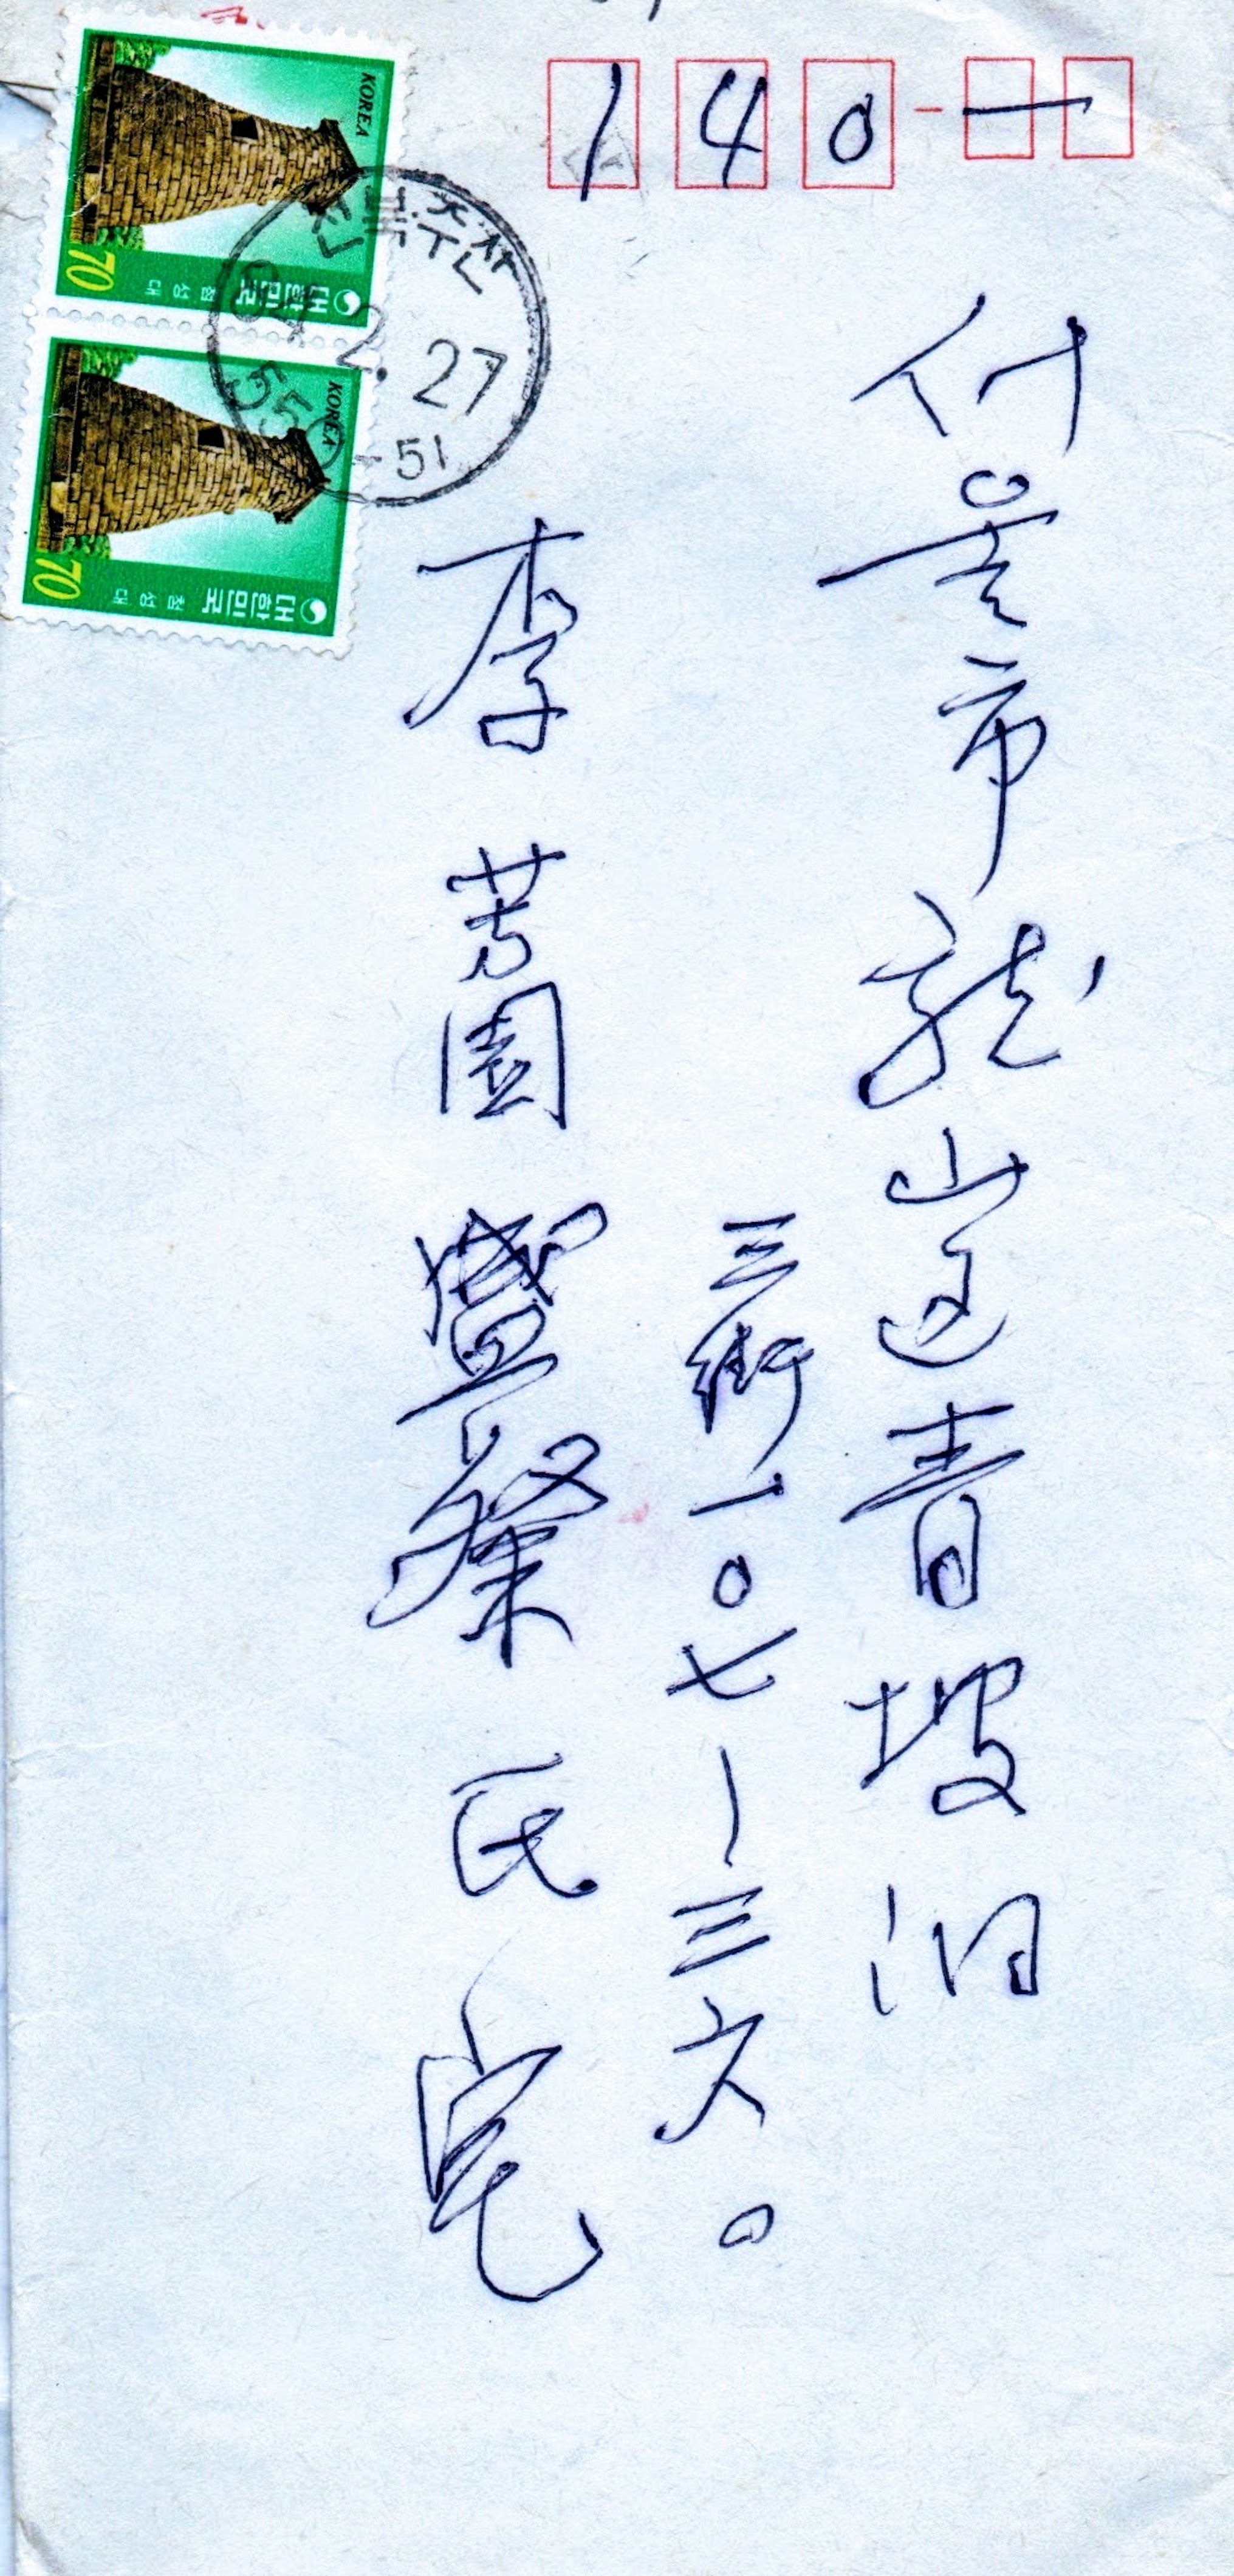 140-一
서울市龍山区青坡洞
三街一〇七-三六〇
李芳園盛發氏宅
KOREA
70
대한민국 첨성대
KOREA
70
대한민국 첨성대
84.2.27
550-51